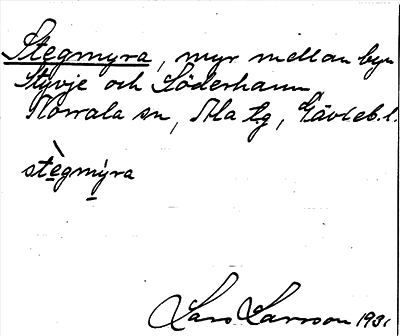 Stegmyra, myr mellan byn
Styvje och Söderhamn,
Norrala sn, Ala tg, Gävleb. l.
stègmýra
Lars Larsson 1931